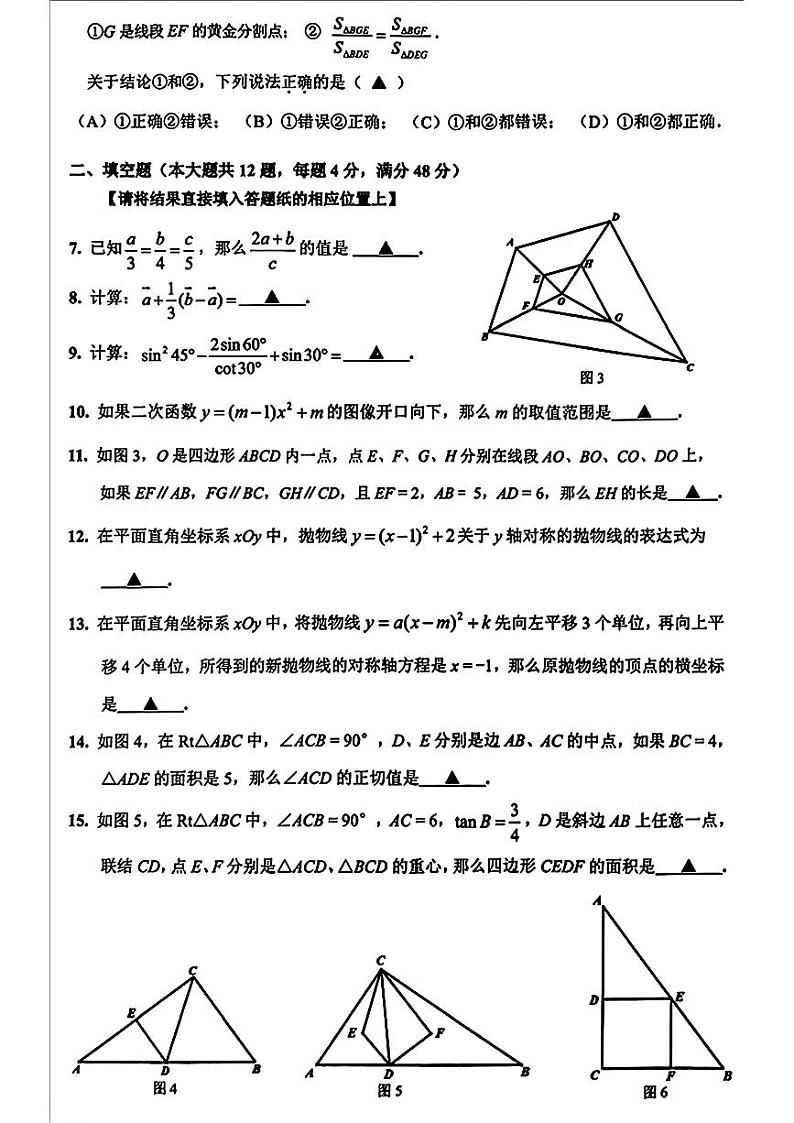 ①G 是线段 EF 的黄金分割点; ② S△BGE/S△BDE = S△BGF/S△DEG.
关于结论①和②，下列说法正确的是（ ▲ ）
（A）①正确②错误; （B）①错误②正确; （C）①和②都错误; （D）①和②都正确.
二、填空题（本大题共 12 题，每题 4 分，满分 48 分）
【请将结果直接填入答题纸的相应位置上】
7. 已知 a/3 = b/4 = c/5，那么 (2a+b)/c 的值是 ▲ .
8. 计算: a⃗+1/3(b⃗−a⃗)= ▲ .
9. 计算: sin²45°−2sin60°/cot30°+sin30°= ▲ .
A
D
E
H
O
F
G
B
C
图 3
10. 如果二次函数 y=(m−1)x²+m 的图像开口向下，那么 m 的取值范围是 ▲ .
11. 如图 3，O 是四边形 ABCD 内一点，点 E、F、G、H 分别在线段 AO、BO、CO、DO 上，
如果 EF∥AB，FG∥BC，GH∥CD，且 EF=2，AB= 5，AD=6，那么 EH 的长是 ▲ .
12. 在平面直角坐标系 xOy 中，抛物线 y=(x−1)²+2 关于 y 轴对称的抛物线的表达式为
▲ .
13. 在平面直角坐标系 xOy 中，将抛物线 y=a(x−m)²+k 先向左平移 3 个单位，再向上平
移 4 个单位，所得到的新抛物线的对称轴方程是 x=−1，那么原抛物线的顶点的横坐标
是 ▲ .
14. 如图 4，在 Rt△ABC 中，∠ACB=90°，D、E 分别是边 AB、AC 的中点，如果 BC=4，
△ADE 的面积是 5，那么∠ACD 的正切值是 ▲ .
15. 如图 5，在 Rt△ABC 中，∠ACB=90°，AC=6，tan B=3/4，D 是斜边 AB 上任意一点，
联结 CD，点 E、F 分别是△ACD、△BCD 的重心，那么四边形 CEDF 的面积是 ▲ .
C
E
A
D
B
图 4
C
E
F
A
D
B
图 5
A
D
E
C
F
B
图 6